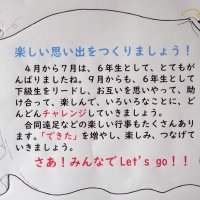 楽しい思い出をつくりましょう！
４月から７月は、６年生として、とてもが
んばりましたね。９月からも、６年生として
下級生をリードし、お互いを思いやって、助
け合って、楽しんで、いろいろなことに、ど
んどんチャレンジしていきましょう。
合同遠足などの楽しい行事もたくさんあり
ます。「できた」を増やし、楽しみ、つなげて
いきましょう。
さあ！みんなでLet's go！！